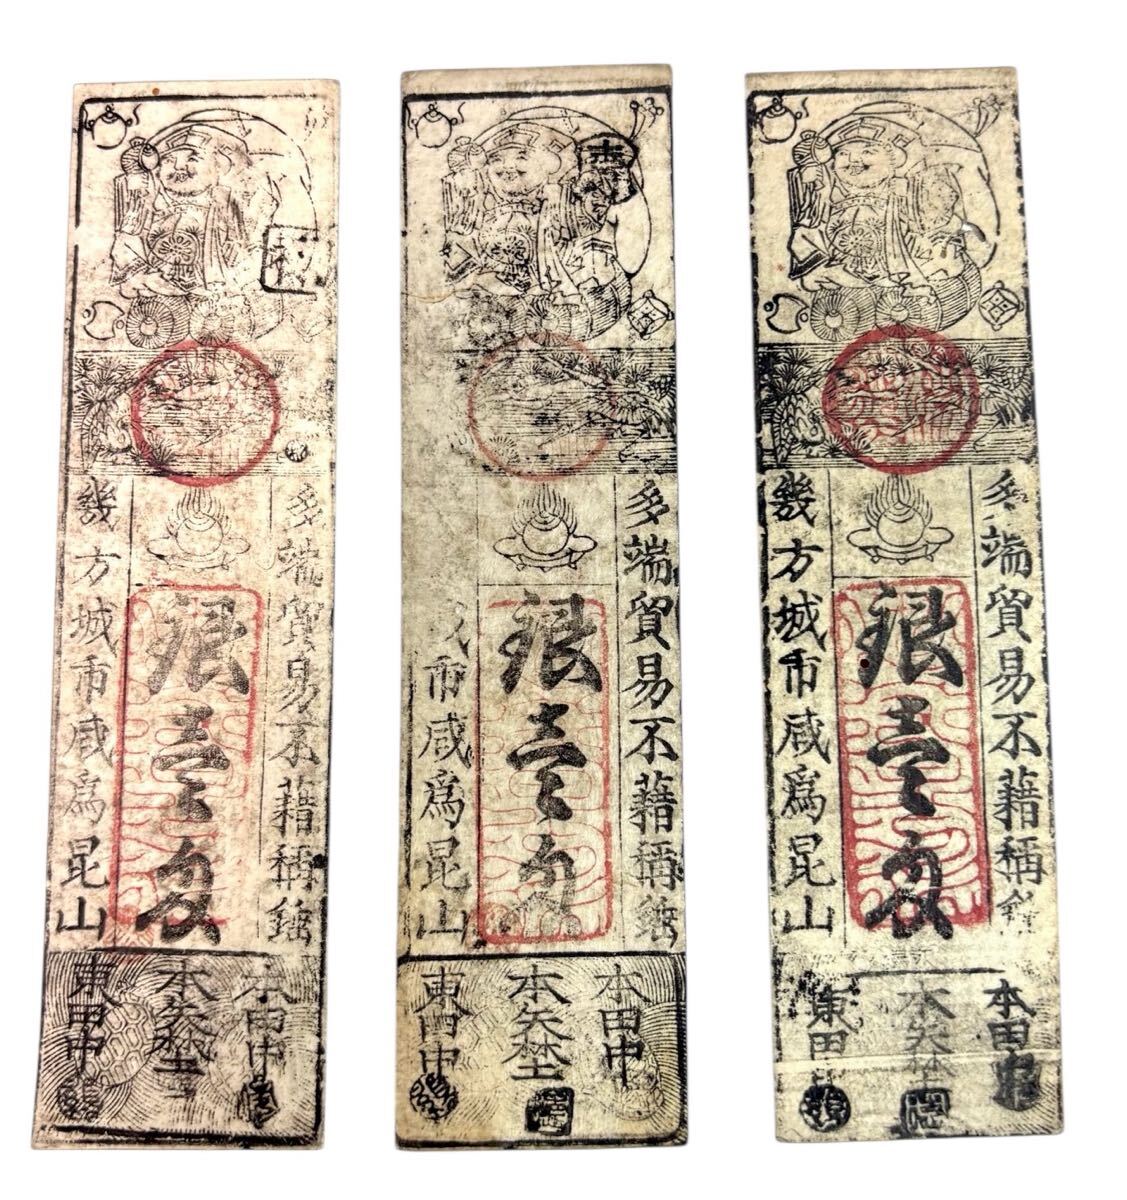 多端貿易不藉稱錘
銀壹匁
幾方城市咸爲昆山
本田中
本矢埜
東田中
多端貿易不藉稱錘
銀壹匁
市咸爲昆山
本田中
本矢埜
東田中
多端貿易不藉稱錘
銀壹匁
幾方城市咸爲昆山
本田中
本矢埜
東田